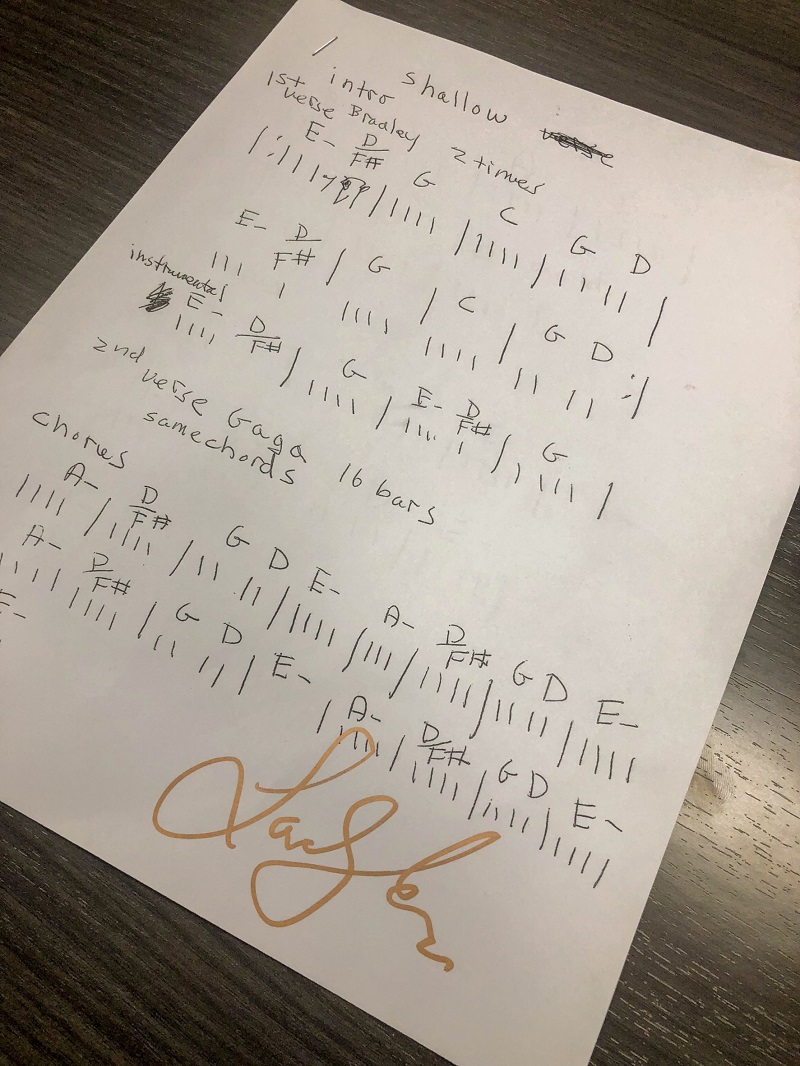 / shallow
intro
1st verse Bradley 2 times
E- D/F# G C G D
/: / / / / / / / / / / / / / / / / / / /
E- D/F# / G / C / G D :/
/ / / / / / / / / / / / / / / /
instrumental
E- D/F# / G / E- D/F# / G /
/ / / / / / / / / / / / / / / / / /
2nd verse Gaga 16 bars
same chords
chorus
A- / D/F# / G D / E- / A- / D/F# / G D / E-
/ / / / / / / / / / / / / / / / / / / / / / / / / / / / / / /
A- D/F# / G D / E- / A- / D/F# / G D / E-
/ / / / / / / / / / / / / / / / / / / / / / / / / / / /
E-